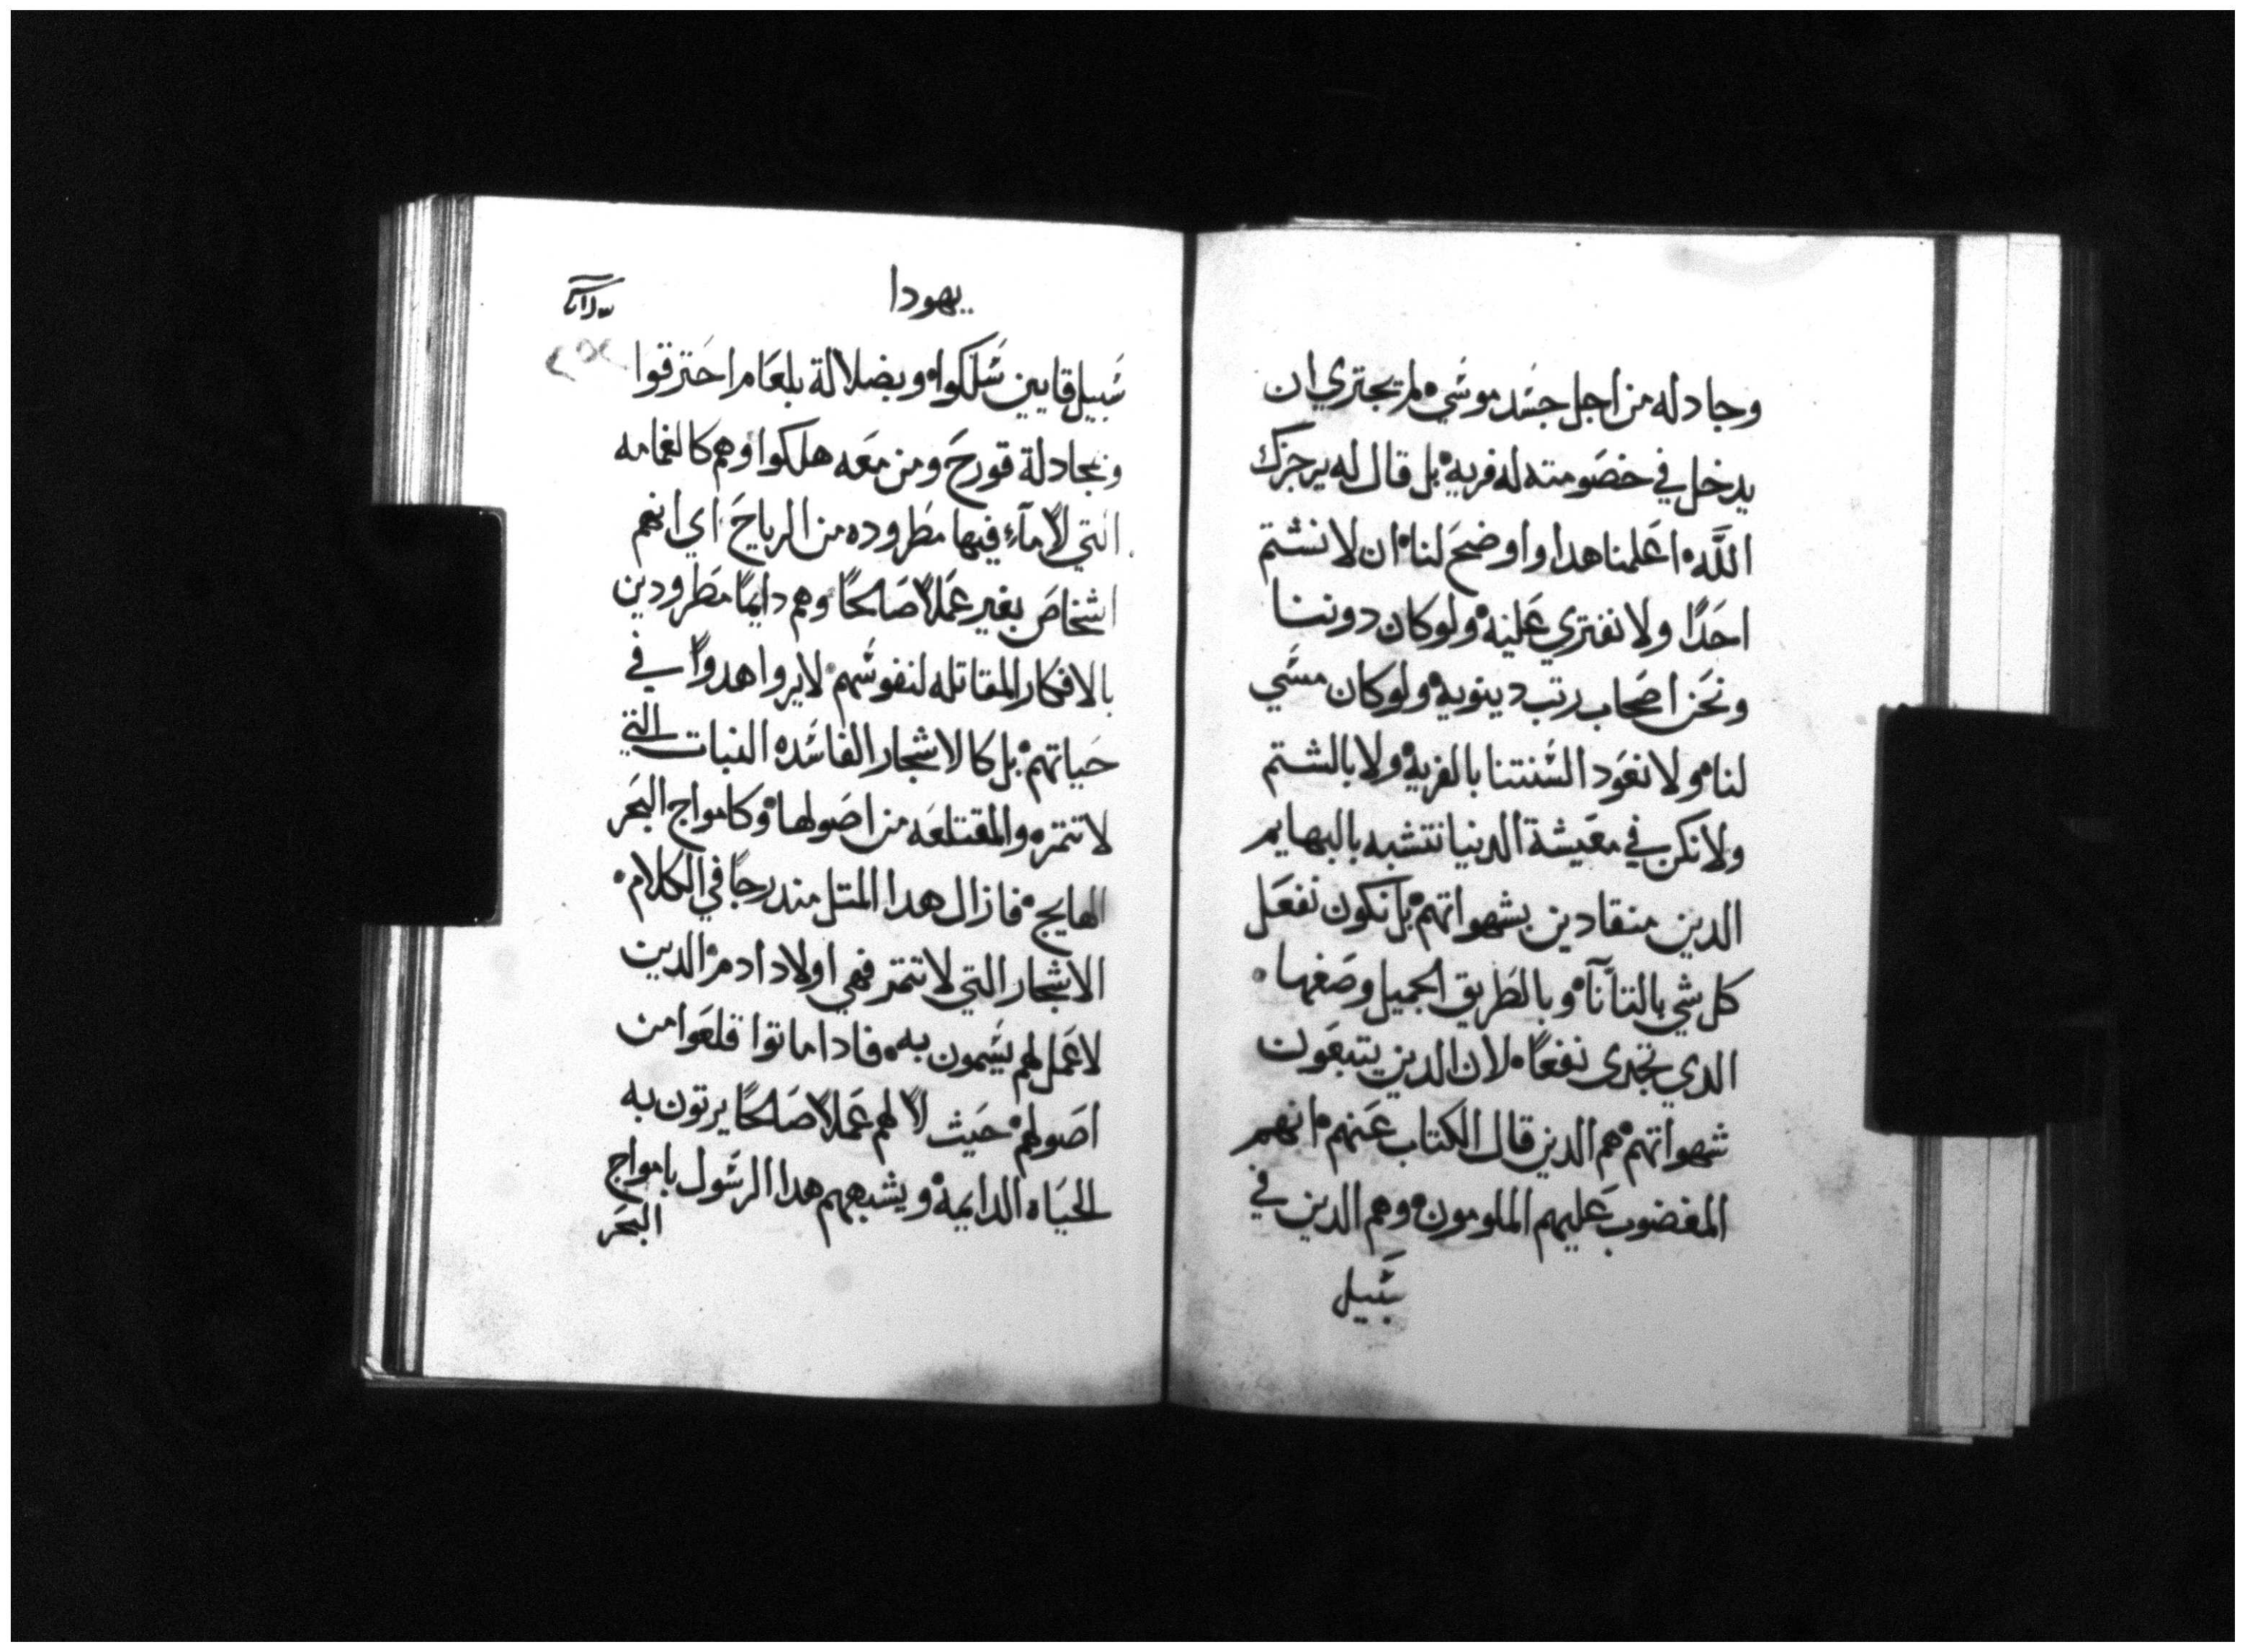 وجادله من اجل جسد موسي لم يجتري ان
يدخل في خصومته له فريه بل قال له يزجزك
الله اعلمنا هدا واوضح لنا ان لا نشتم
احدًا ولا نفتري عليه ولو كان دوننا
ونحن اصحاب رتب دينويه ولو كان مسي
لنا ولا نعود السنتنا بالفريه ولا بالشتم
ولا نكن في معيشة الدنيا نتشبه بالبهايم
الدين منقادين بشهواتهم بل نكون نفعل
كل شي بالتأنآ وبالطريق الجميل وصغها
الدي تجدى نفعًا لان الدين يتبعون
شهواتهم هم الدين قال الكتاب عنهم انهم
المغضوب عليهم الملومون وهم الدين في
سبيل
يهودا
سبيل قايين سلكوا وبضلالة بلعام احترقوا
وبمجادلة قورح ومن معه هلكوا وهم كالغمامه
التي لا مآء فيها مطروده من الرياح اي انهم
اشخاص بغير عملاً صالحًا وهم دايمًا مطرودين
بالافكار المقاتله لنفوسهم لا يروا هدواً في
حياتهم بل كالاشجار الفاسده النبات التي
لا تتمره والمقتلعه من اصولها وكامواج البحر
الهايج فازال هدا المتل مندرجًا في الكلام
الاشجار التي لا تتمر فهي اولاد ادم الدين
لا عمل لهم يسمون به فادا ماتوا قلعوا من
اصولهم حيث لا لهم عملاً صالحًا يرتون به
الحياه الدايمه ويشبههم هدا الرسول بامواج
البحر